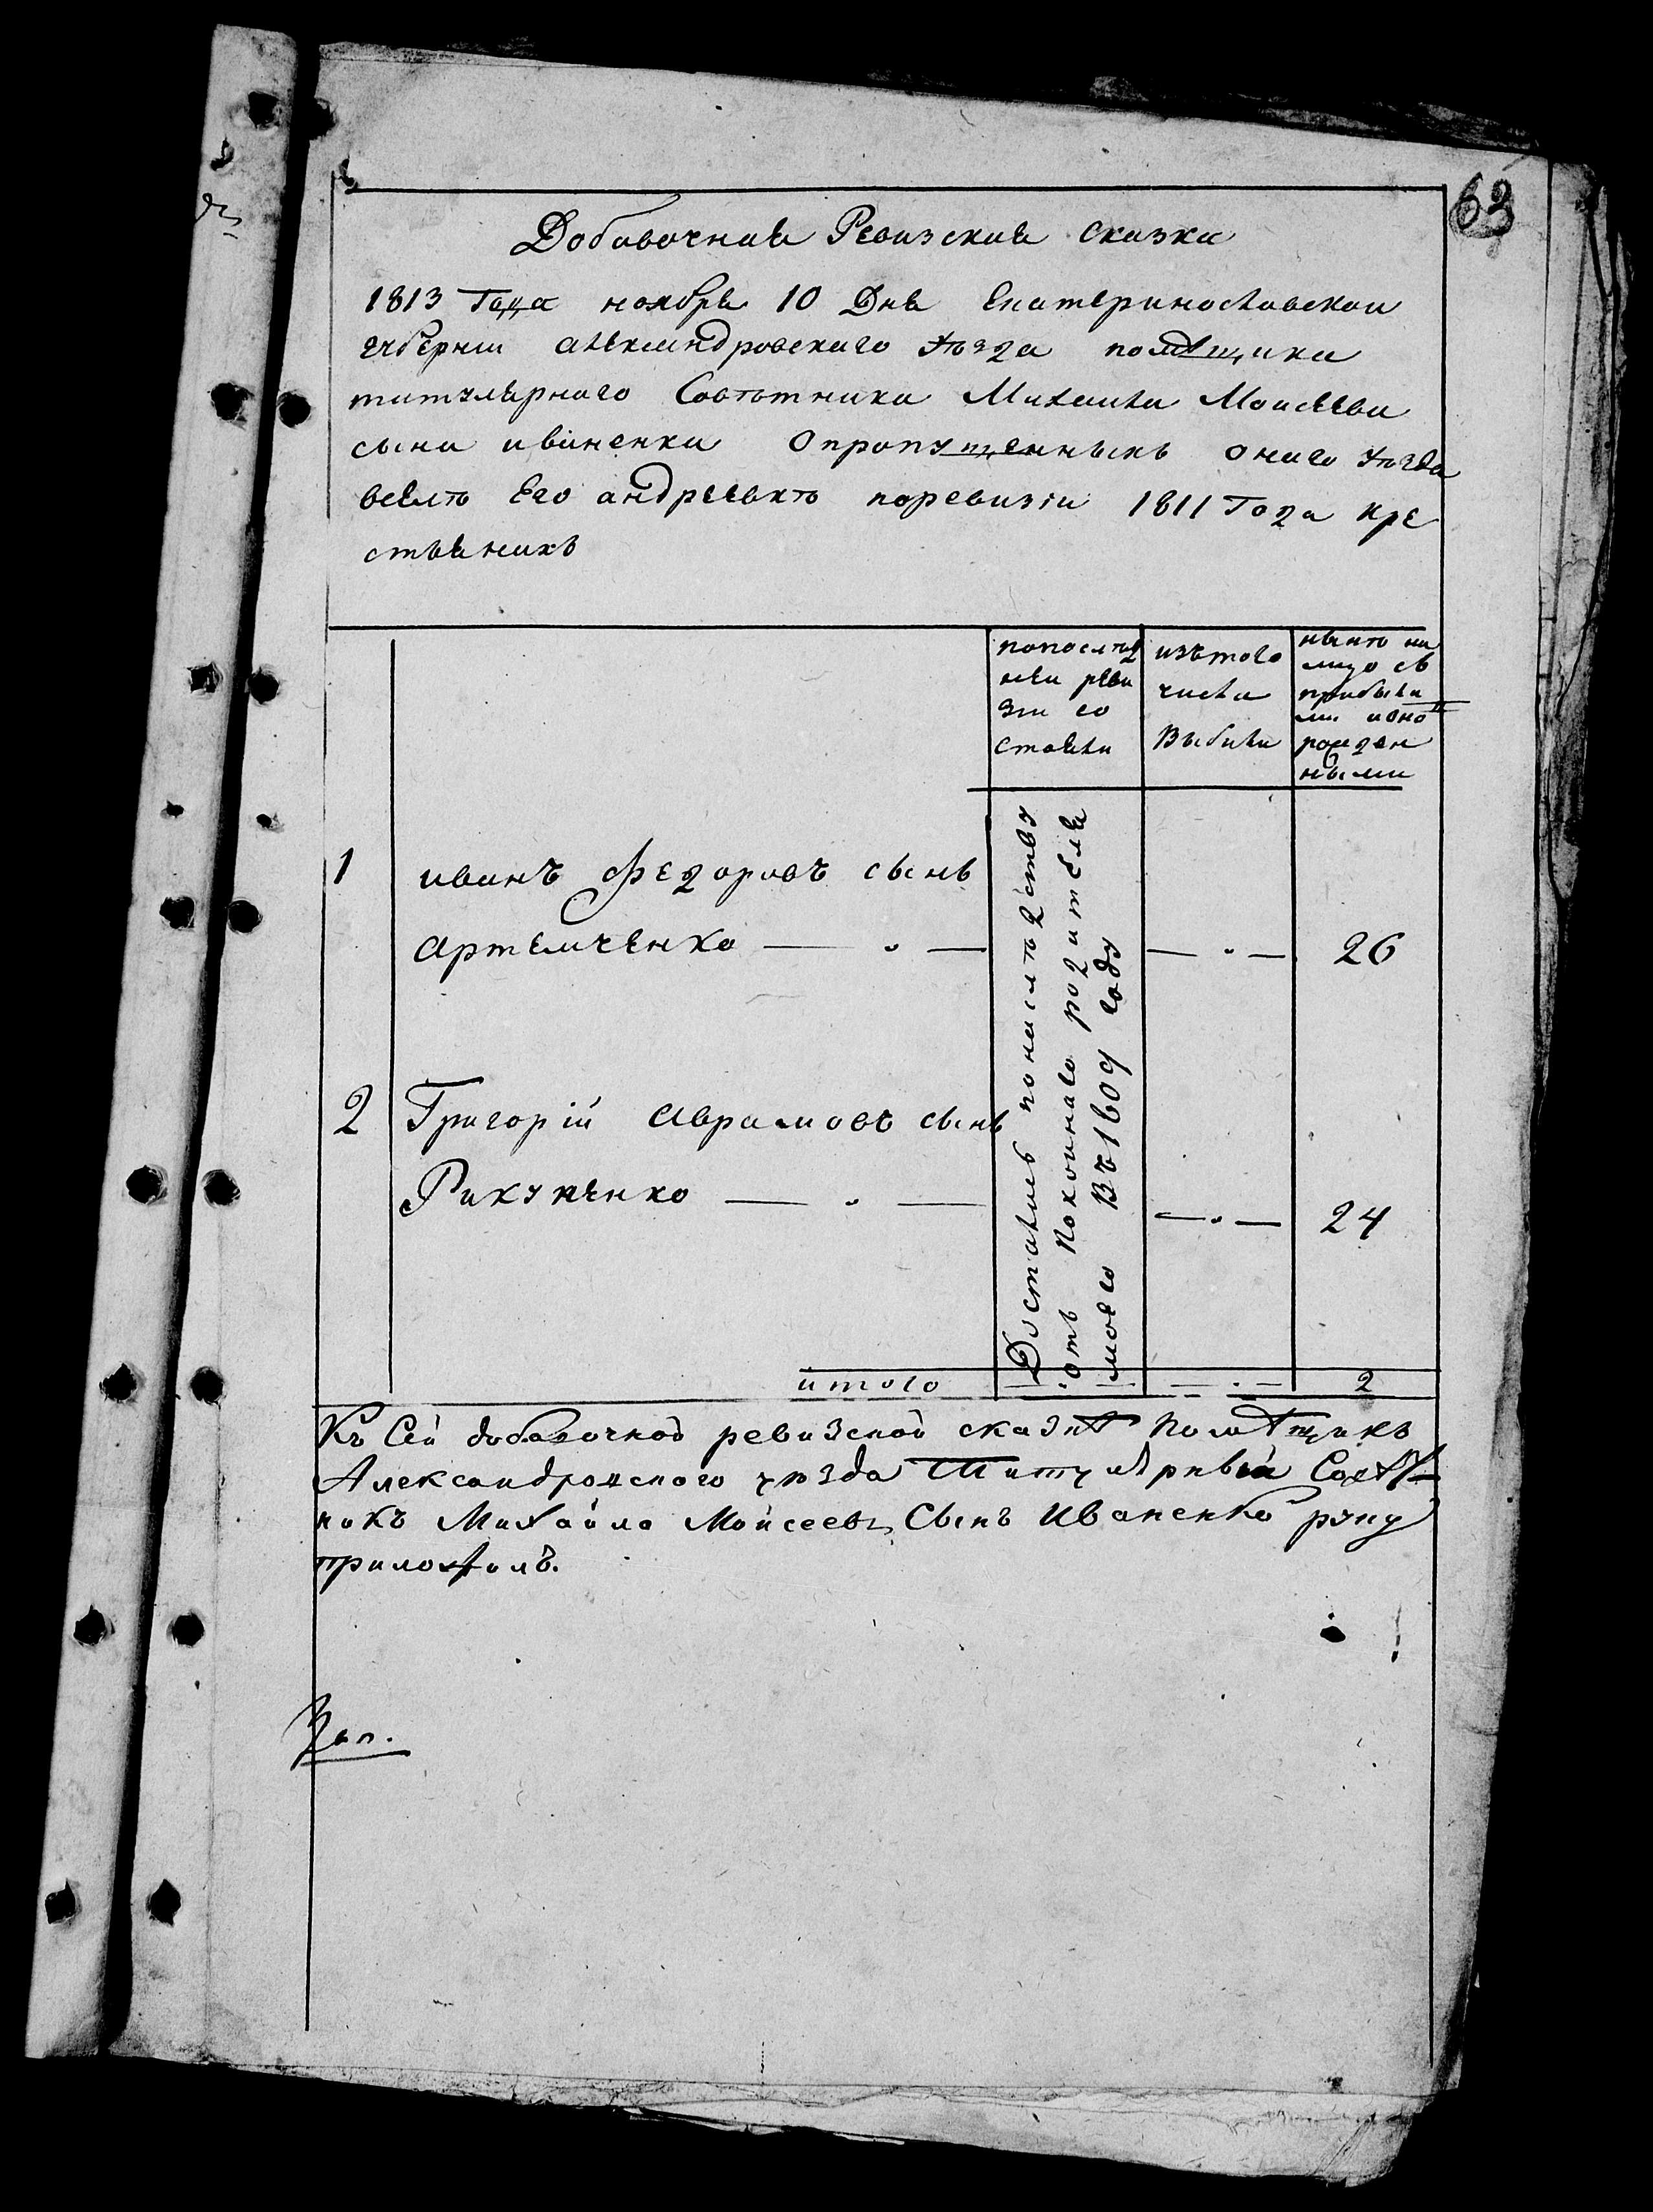 63
Добавочная Ревизская сказка
1813 Года ноября 10 Дня Екатеринославской
губернии александровскаго уѣзда помѣщика
титулярнаго Совѣтника Михаила Моисеева
сына иваненка о пропущенныхъ онаго уѣзда
вселѣ Его андреевкѣ поревизіи 1811 Года кре
стьянахъ
попослѣд
ней реви
зіи со
стояли
изътого
числа
Выбыли
нынѣ на
лицо съ
прибылы
ми иново
рожден
ными
1
иванъ Федоровъ сынъ
артемченко — " —
— " —
26
Досталисъ понаслѣдству
отъ покойнаго родителя
моего Въ1809 году
2
Григорій аврамовъ сынъ
Рикунченко — " —
— " —
24
итого — " — — " — 2
Къ Сей добавочной ревизской сказкѣ Помѣщикъ
Александровского уѣзда Титулярный Совѣт
никъ Михайло Мойсеевъ Сынъ Иваненко руку
приложилъ.